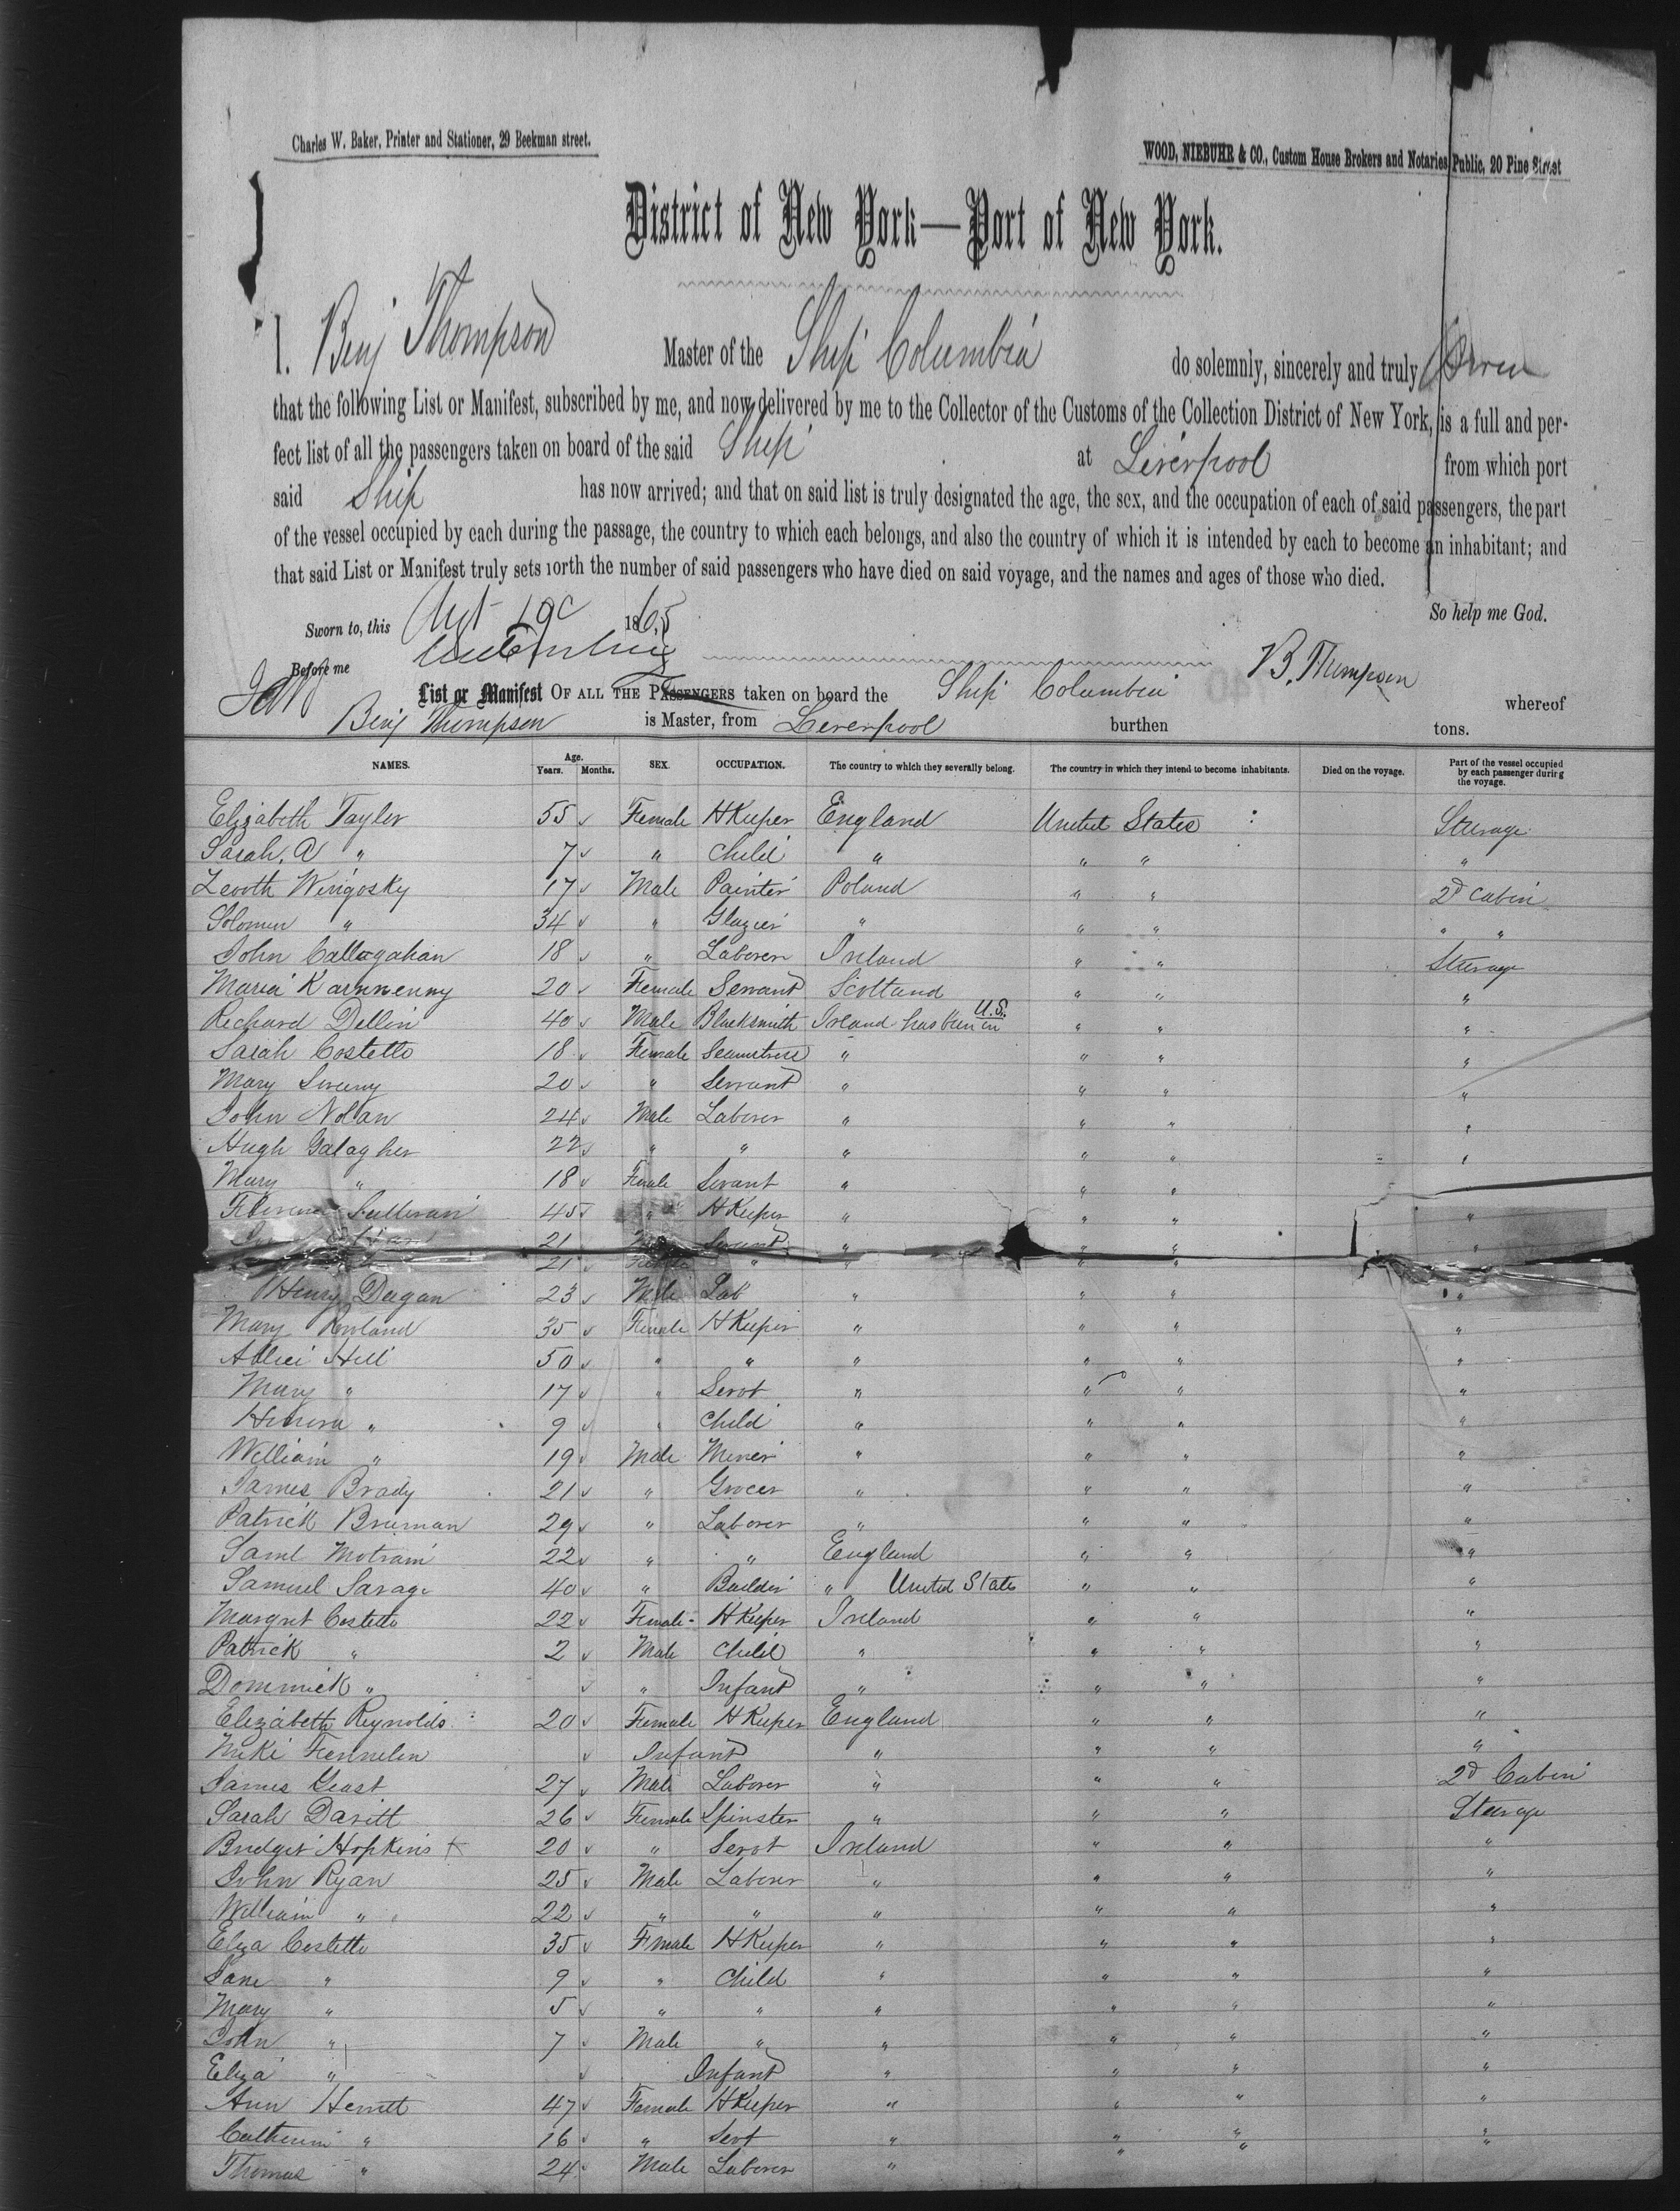 Charles W. Baker, Printer and Stationer, 29 Beekman street.
WOOD, NIEBUHR & CO., Custom House Brokers and Notaries Public, 20 Pine Street
District of New York—Port of New York.
I. Benj Thompson Master of the Ship Columbia do solemnly, sincerely and truly
that the following List or Manifest, subscribed by me, and now delivered by me to the Collector of the Customs of the Collection District of New York, is a full and per-
fect list of all the passengers taken on board of the said Ship at Liverpool from which port
said Ship has now arrived; and that on said list is truly designated the age, the sex, and the occupation of each of said passengers, the part
of the vessel occupied by each during the passage, the country to which each belongs, and also the country of which it is intended by each to become an inhabitant; and
that said List or Manifest truly sets forth the number of said passengers who have died on said voyage, and the names and ages of those who died.
So help me God.
Sworn to, this 1865
Before me B. Thompson
List or Manifest OF ALL THE PASSENGERS taken on board the Ship Columbia whereof
Benj Thompson is Master, from Liverpool burthen tons.
NAMES. Age. Years. Months. SEX. OCCUPATION. The country to which they severally belong. The country in which they intend to become inhabitants. Died on the voyage. Part of the vessel occupied by each passenger during the voyage.
Elizabeth Tayler 55 Female HKeeper England United States Steerage
Sarah. A " 7 " Child " " " "
Wingosky 17 Male Painter Poland " " 2d Cabin
Solomon " 34 " Glazier " " " " "
John Callagahan 18 " Laborer Ireland " " Steerage
Maria Karnkenny 20 Female Servant Scotland " " "
Richard Dellin 40 Male Blacksmith Ireland has been in U.S. " " "
Sarah Costello 18 Female Seamstress " " " "
Mary Sweeny 20 " Servant " " " "
John Nolan 24 Male Laborer " " " "
Hugh Galagher 22 " " " " " "
Mary " 18 Female Servant " " " "
Florence Sullivan 45 " HKeeper " " " "
21 Servant " " " "
21 " " " "
Henry Dugan 23 Male Lab " " " "
Mary Rowland 35 Female HKeeper " " " "
Allice Hill 50 " " " " " "
Mary " 17 " Servt " " " "
Honora " 9 " Child " " " "
William " 19 Male Miner " " " "
James Brady 21 " Grocer " " " "
Patrick Bruman 29 " Laborer " " " "
Saml Motram 22 " " England " " "
Samuel Savage 40 " Builder " United States " " "
Margret Costello 22 Female HKeeper Ireland " " "
Patrick " 2 Male Child " " " "
Dominick " " Infant " " " "
Elizabeth Reynolds 20 Female HKeeper England " " "
Fennelen Infant " " " "
James Geast 27 Male Laborer " " " 2d Cabin
Sarah Davitt 26 Female Spinster " " " Steerage
Bridget Hopkins x 20 " Servt Ireland " " "
John Ryan 25 Male Laborer " " " "
William " 22 " " " " " "
Eliza Costello 35 Female HKeeper " " " "
Jane " 9 " Child " " " "
Mary " 5 " " " " " "
John " 7 Male " " " " "
Eliza " Infant " " " "
Ann Hewitt 47 Female HKeeper " " " "
Catherine " 16 " Servt " " " "
Thomas " 24 Male Laborer " " " "